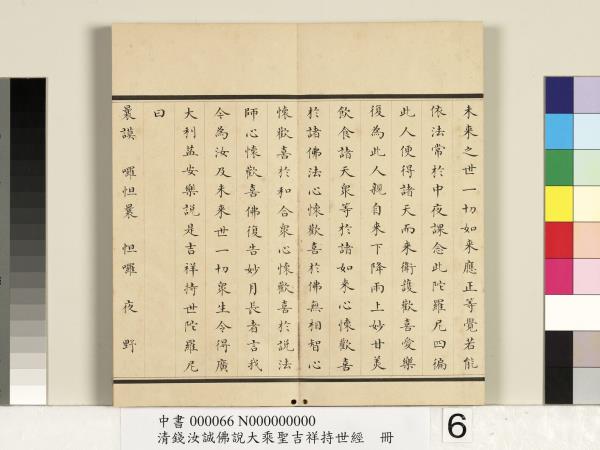 未來之世一切如来應正等覺若能
依法常於中夜課念此陀羅尼四徧
此人便得諸天而来衛護歡喜愛樂
復為此人親自来下降雨上妙甘美
飲食諸天衆等於諸如来心懐歡喜
於諸佛法心懐歡喜於佛無相智心
懐歡喜於和合衆心懐歡喜於說法
師心懐歡喜佛復告妙月長者言我
今為汝及未来世一切衆生令得廣
大利益安樂說是吉祥持世陀羅尼
曰
曩謨 囉怛曩 怛囉 夜野
中書 000066 N000000000
清錢汝誠佛說大乘聖吉祥持世經 冊
6